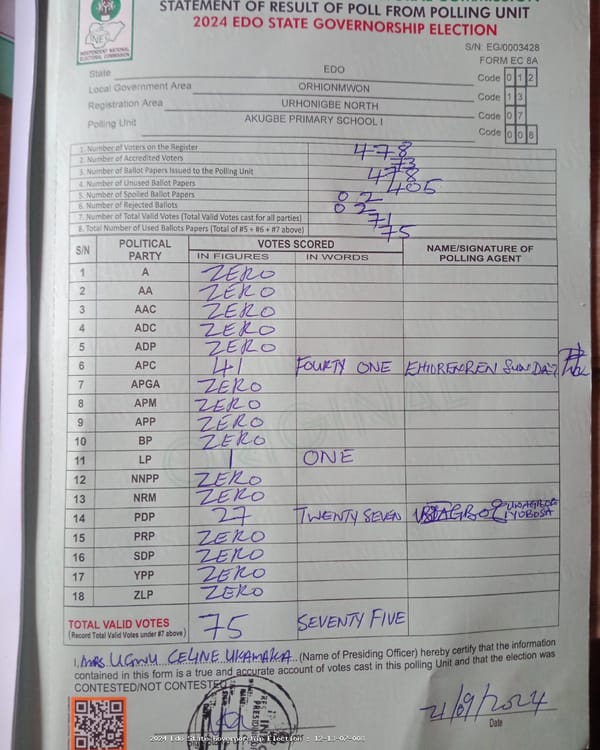 STATEMENT OF RESULT OF POLL FROM POLLING UNIT
2024 EDO STATE GOVERNORSHIP ELECTION
INEC
INDEPENDENT NATIONAL ELECTORAL COMMISSION
S/N: EG/0003428
FORM EC 8A
State EDO Code 0 1 2
Local Government Area ORHIONMWON Code 1 3
Registration Area URHONIGBE NORTH Code 0 7
Polling Unit AKUGBE PRIMARY SCHOOL I Code 0 0 8
1. Number of Voters on the Register 478
2. Number of Accredited Voters 73
3. Number of Ballot Papers Issued to the Polling Unit 478
4. Number of Unused Ballot Papers 405
5. Number of Spoiled Ballot Papers 02
6. Number of Rejected Ballots 02
7. Number of Total Valid Votes (Total Valid Votes cast for all parties) 71
8. Total Number of Used Ballots Papers (Total of #5 + #6 + #7 above) 75
S/N POLITICAL PARTY VOTES SCORED NAME/SIGNATURE OF POLLING AGENT
IN FIGURES IN WORDS
1 A ZERO
2 AA ZERO
3 AAC ZERO
4 ADC ZERO
5 ADP ZERO
6 APC 41 FOURTY ONE EHIDRENREN SUNDAY
7 APGA ZERO
8 APM ZERO
9 APP ZERO
10 BP ZERO
11 LP 1 ONE
12 NNPP ZERO
13 NRM ZERO
14 PDP 27 TWENTY SEVEN IYOBOSA
15 PRP ZERO
16 SDP ZERO
17 YPP ZERO
18 ZLP ZERO
ORIGINAL
TOTAL VALID VOTES 75 SEVENTY FIVE
(Record Total Valid Votes under #7 above)
I, MRS UGWU CELINE UKAMAKA (Name of Presiding Officer) hereby certify that the information
contained in this form is a true and accurate account of votes cast in this polling Unit and that the election was
CONTESTED/NOT CONTESTED
21/09/2024
Date
2024 Edo State Governorship Election : 12-13-07-008